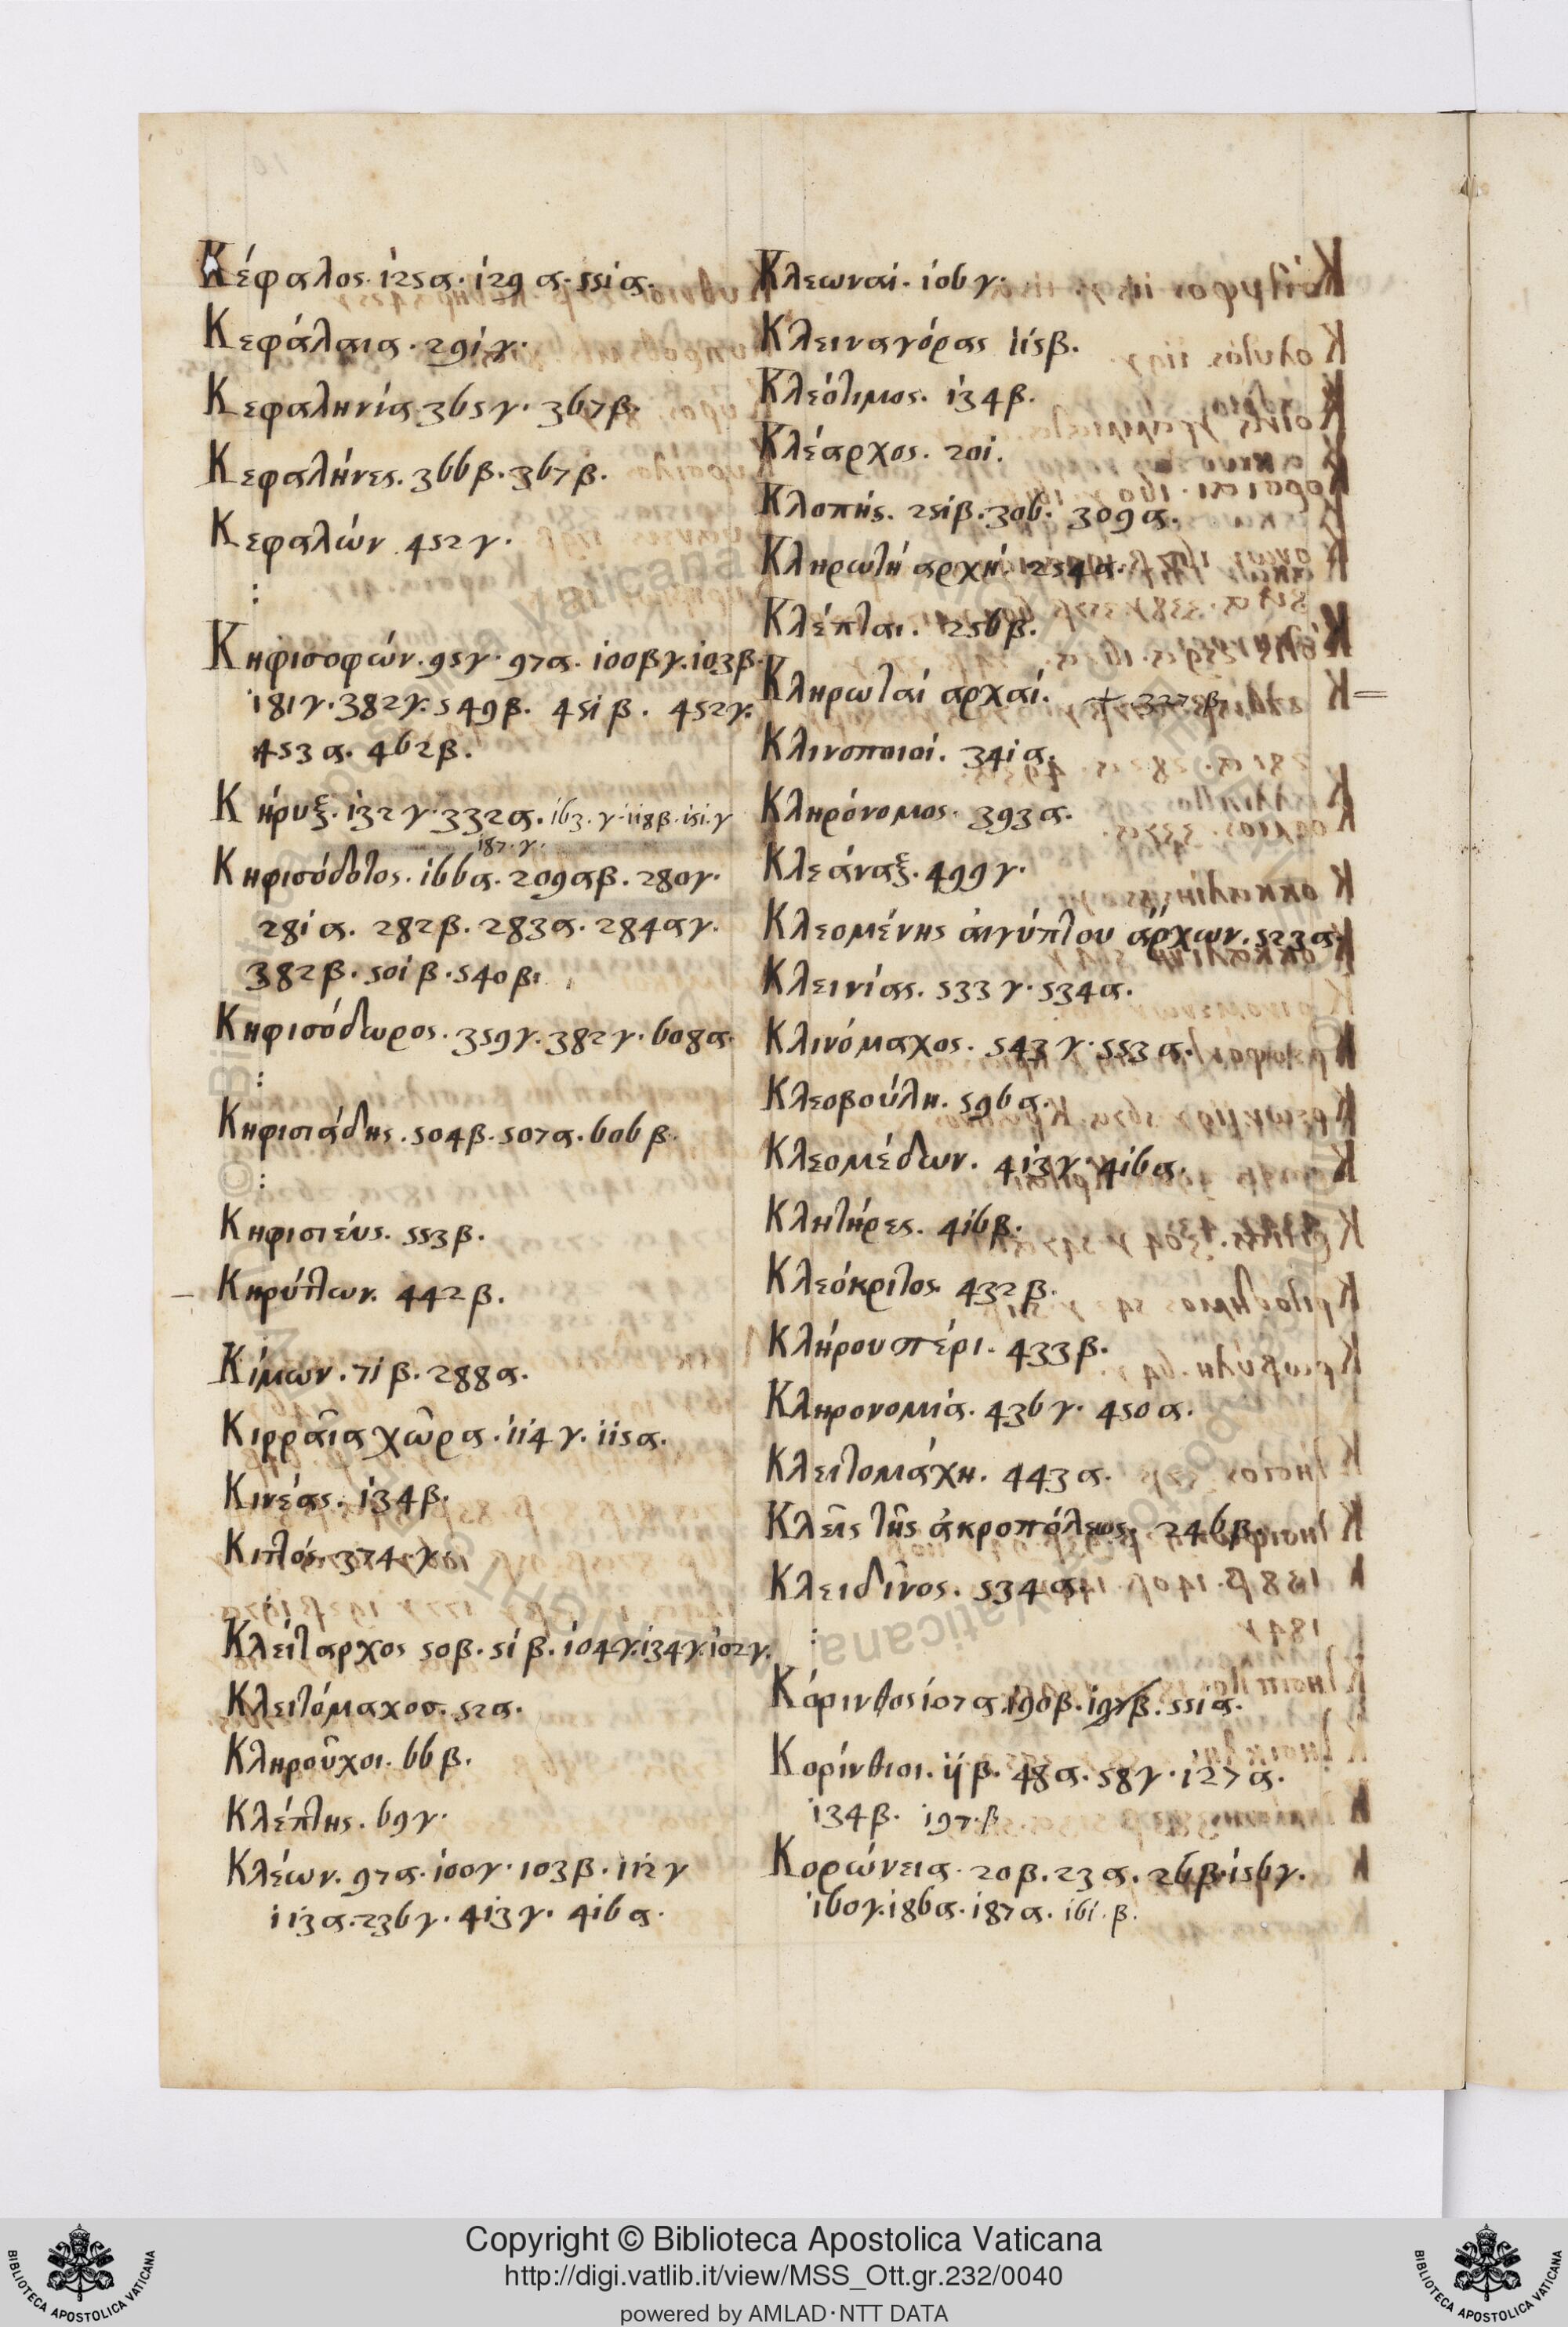 Κέφαλος. 125α. 129 α. 551 α.
Κεφάλαια. 291 γ.
Κεφαληνία. 365 γ. 367 β.
Κεφαλήνες. 366 β. 367 β.
Κεφαλών. 452 γ.
:
Κηφισοφών. 95γ. 97α. 100βγ. 103β.
181γ. 382γ. 549β. 451 β. 452γ.
453 α. 462 β.
Κήρυξ. 132 γ. 332α. 163. γ. 118β. 151. γ
187. γ.
Κηφισόδοτος. 166α. 209αβ. 280γ.
281 α. 282β. 283α. 284αγ.
382β. 501 β. 540 β.
Κηφισόδωρος. 359γ. 382γ. 608α.
:
Κηφισιάδης. 504β. 507α. 606β.
:
Κηφισιεύς. 553β.
Κηρύττων. 442β.
Κίμων. 71 β. 288α.
Κιρραῖα χῶρα. 114 γ. 115α.
Κινέας. 134β.
Κιττός. 374. γ.
:
Κλείταρχος 50β. 51 β. 104γ. 134γ. 102γ.
Κλειτόμαχος. 52α.
Κληροῦχοι. 66β.
Κλέπτης. 69γ.
Κλέων. 97α. 100γ. 103β. 112γ
113α. 236γ. 413γ. 416α.
Κλεωναί. 106γ.
Κλειναγόρας 115β.
Κλεότιμος. 134β.
Κλέαρχος. 201.
Κλοπῆς. 251β. 306. 309α.
Κληρωτή αρχή. 254α.
Κλέπται. 256β.
Κληρωταί αρχαί. + 327. β.
Κλινοποιοί. 341 α.
Κληρόνομος. 393α.
Κλεάναξ. 499γ.
Κλεομένης αἰγύπτου ἄρχων. 523α.
Κλεινίας. 533γ. 534α.
Κλινόμαχος. 543γ. 553α.
Κλεοβούλη. 596α.
Κλεομέδων. 413γ. 416α.
Κλητήρες. 416β.
Κλεόκριτος. 432β.
Κλήρου πέρι. 433β.
Κληρονομία. 436γ. 450α.
Κλειτομάχη. 443α.
Κλεῖς τῆς ἀκροπόλεως. 246β.
Κλειδῖνος. 534α.
:
Κόρινθος 107α. 190β. 197β. 551α.
Κορίνθιοι. 11β. 48α. 58γ. 127α.
134β. 197. β
Κορώνεια. 20β. 23α. 26β. 156γ.
160γ. 186α. 187α. 161. β.
Copyright © Biblioteca Apostolica Vaticana
http://digi.vatlib.it/view/MSS_Ott.gr.232/0040
powered by AMLAD·NTT DATA
BIBLIOTECA APOSTOLICA VATICANA
BIBLIOTECA APOSTOLICA VATICANA